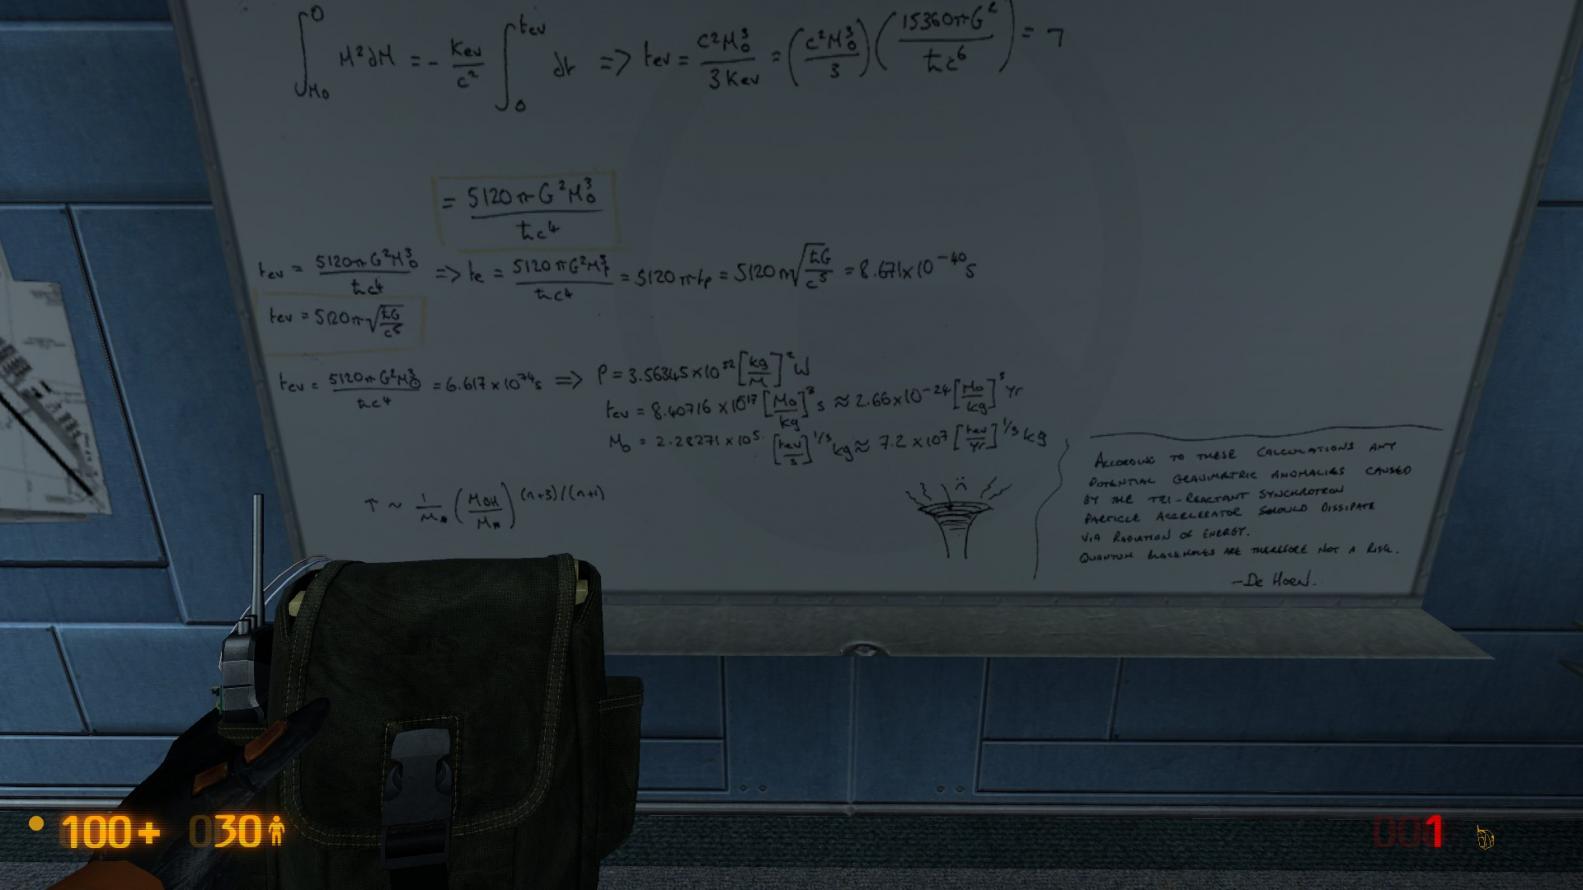 ∫_{M₀}^{0} M²dM = - Kev/c² ∫_{0}^{tev} dt => tev = c²M₀³/3Kev = (c²M₀³/3)(15360πG²/ħc⁶) = 7
= 5120πG²M₀³/ħc⁴
tev = 5120πG²M₀³/ħc⁴ => te = 5120πG²M³/ħc⁴ = 5120π tp = 5120π√(ħG/c⁵) = 8.671×10⁻⁴⁰s
tev = 5120π√(ħG/c⁵)
tev = 5120πG²M₀³/ħc⁴ = 6.617×10⁷⁴s => P = 3.56345×10³²[kg/M]²W
tev = 8.40716×10¹⁷[M₀/kg]³ s ≈ 2.66×10⁻²⁴[M₀/kg]³ Yr
M₀ = 2.28271×10⁵[tev/s]^{1/3} kg ≈ 7.2×10⁷[tev/Yr]^{1/3} kg
τ ~ 1/M* (MBH/M*)^{(n+3)/(n+1)}
ACCORDING TO THESE CALCULATIONS ANY
POTENTIAL GRAVIMETRIC ANOMALIES CAUSED
BY THE TRI-REACTANT SYNCHOTRON
PARTICLE ACCELERATOR SHOULD DISSIPATE
VIA RADIATION OF ENERGY.
QUANTUM BLACKHOLES ARE THEREFORE NOT A RISK.
-DE HORN.
100+ 030
001